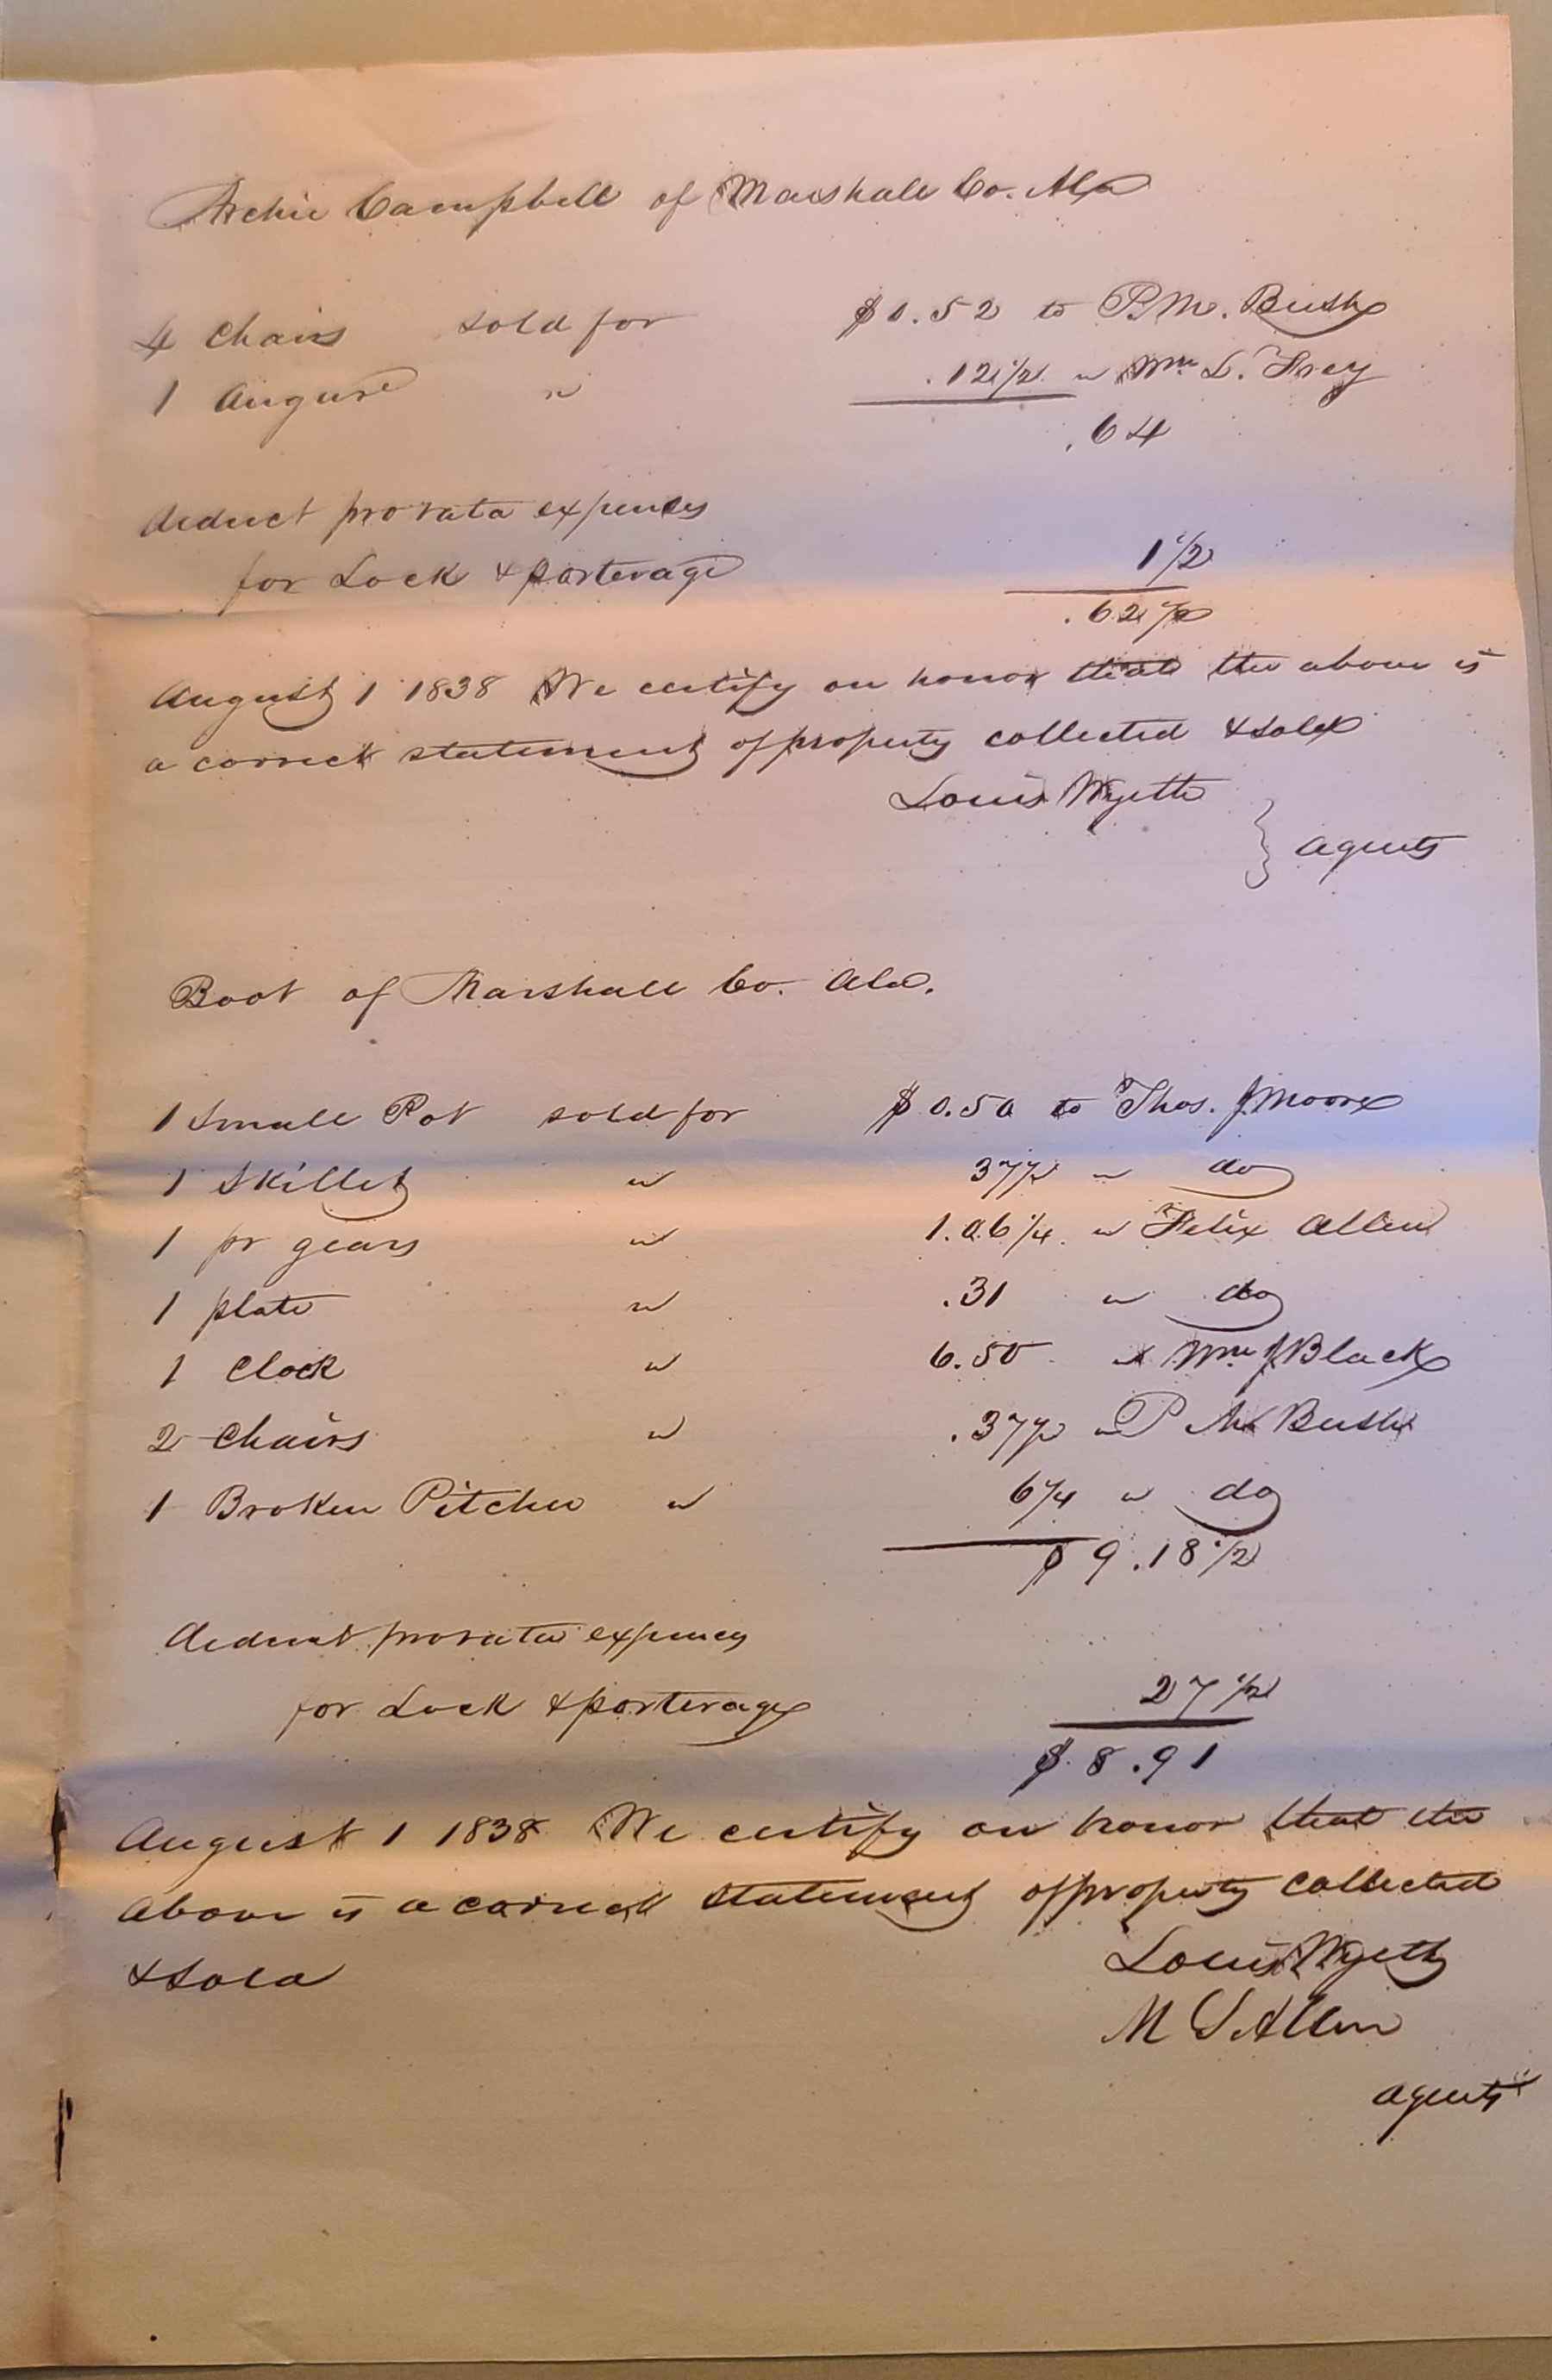 Archie Campbell of Marshall Co. Ala
4 Chairs sold for $0.52 to P. M. Bush
1 Augure " .12 1/2 " Wm L. Frey
.64
deduct prorata expenses
for Lock & porterage 1 1/2
.62 1/2
August 1 1838 We certify on honor that the above is
a correct statement of property collected & sold
Louis Wyeth
} agents
Boot of Marshall Co. Ala.
1 Small Pot sold for $0.50 to Thos. J Moore
1 Skillet " 37 1/2 " do
1 pr gears " 1.06 1/4 " Felix Allen
1 plate " .31 " do
1 Clock " 6.50 " Wm J Black
2 Chairs " .37 1/2 " P M Bush
1 Broken Pitcher " 6 1/4 " do
$9.18 1/2
deduct prorata expenses
for Lock & porterage 27 1/2
$8.91
August 1 1838 We certify on honor that the
above is a correct statement of property collected
& Sold
Louis Wyeth
M S Allen
agents